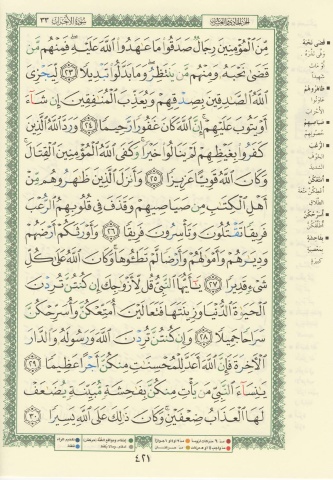 سورة الأحزاب ٣٣
مِّنَ الْمُؤْمِنِينَ رِجَالٌ صَدَقُوا مَا عَاهَدُوا اللَّهَ عَلَيْهِ فَمِنْهُم مَّن
قَضَىٰ نَحْبَهُ وَمِنْهُم مَّن يَنتَظِرُ وَمَا بَدَّلُوا تَبْدِيلًا ٢٣ لِّيَجْزِيَ
اللَّهُ الصَّادِقِينَ بِصِدْقِهِمْ وَيُعَذِّبَ الْمُنَافِقِينَ إِن شَاءَ
أَوْ يَتُوبَ عَلَيْهِمْ إِنَّ اللَّهَ كَانَ غَفُورًا رَّحِيمًا ٢٤ وَرَدَّ اللَّهُ الَّذِينَ
كَفَرُوا بِغَيْظِهِمْ لَمْ يَنَالُوا خَيْرًا وَكَفَى اللَّهُ الْمُؤْمِنِينَ الْقِتَالَ
وَكَانَ اللَّهُ قَوِيًّا عَزِيزًا ٢٥ وَأَنزَلَ الَّذِينَ ظَاهَرُوهُم مِّنْ
أَهْلِ الْكِتَابِ مِن صَيَاصِيهِمْ وَقَذَفَ فِي قُلُوبِهِمُ الرُّعْبَ
فَرِيقًا تَقْتُلُونَ وَتَأْسِرُونَ فَرِيقًا ٢٦ وَأَوْرَثَكُمْ أَرْضَهُمْ
وَدِيَارَهُمْ وَأَمْوَالَهُمْ وَأَرْضًا لَّمْ تَطَئُوهَا وَكَانَ اللَّهُ عَلَىٰ كُلِّ
شَيْءٍ قَدِيرًا ٢٧ يَا أَيُّهَا النَّبِيُّ قُل لِّأَزْوَاجِكَ إِن كُنتُنَّ تُرِدْنَ
الْحَيَاةَ الدُّنْيَا وَزِينَتَهَا فَتَعَالَيْنَ أُمَتِّعْكُنَّ وَأُسَرِّحْكُنَّ
سَرَاحًا جَمِيلًا ٢٨ وَإِن كُنتُنَّ تُرِدْنَ اللَّهَ وَرَسُولَهُ وَالدَّارَ
الْآخِرَةَ فَإِنَّ اللَّهَ أَعَدَّ لِلْمُحْسِنَاتِ مِنكُنَّ أَجْرًا عَظِيمًا ٢٩
يَا نِسَاءَ النَّبِيِّ مَن يَأْتِ مِنكُنَّ بِفَاحِشَةٍ مُّبَيِّنَةٍ يُضَاعَفْ
لَهَا الْعَذَابُ ضِعْفَيْنِ وَكَانَ ذَٰلِكَ عَلَى اللَّهِ يَسِيرًا ٣٠
٤٢١
قضى نحبه
ظاهروهم
صياصيهم
الرعب
أمتعكن
أسرحكن
بفاحشة